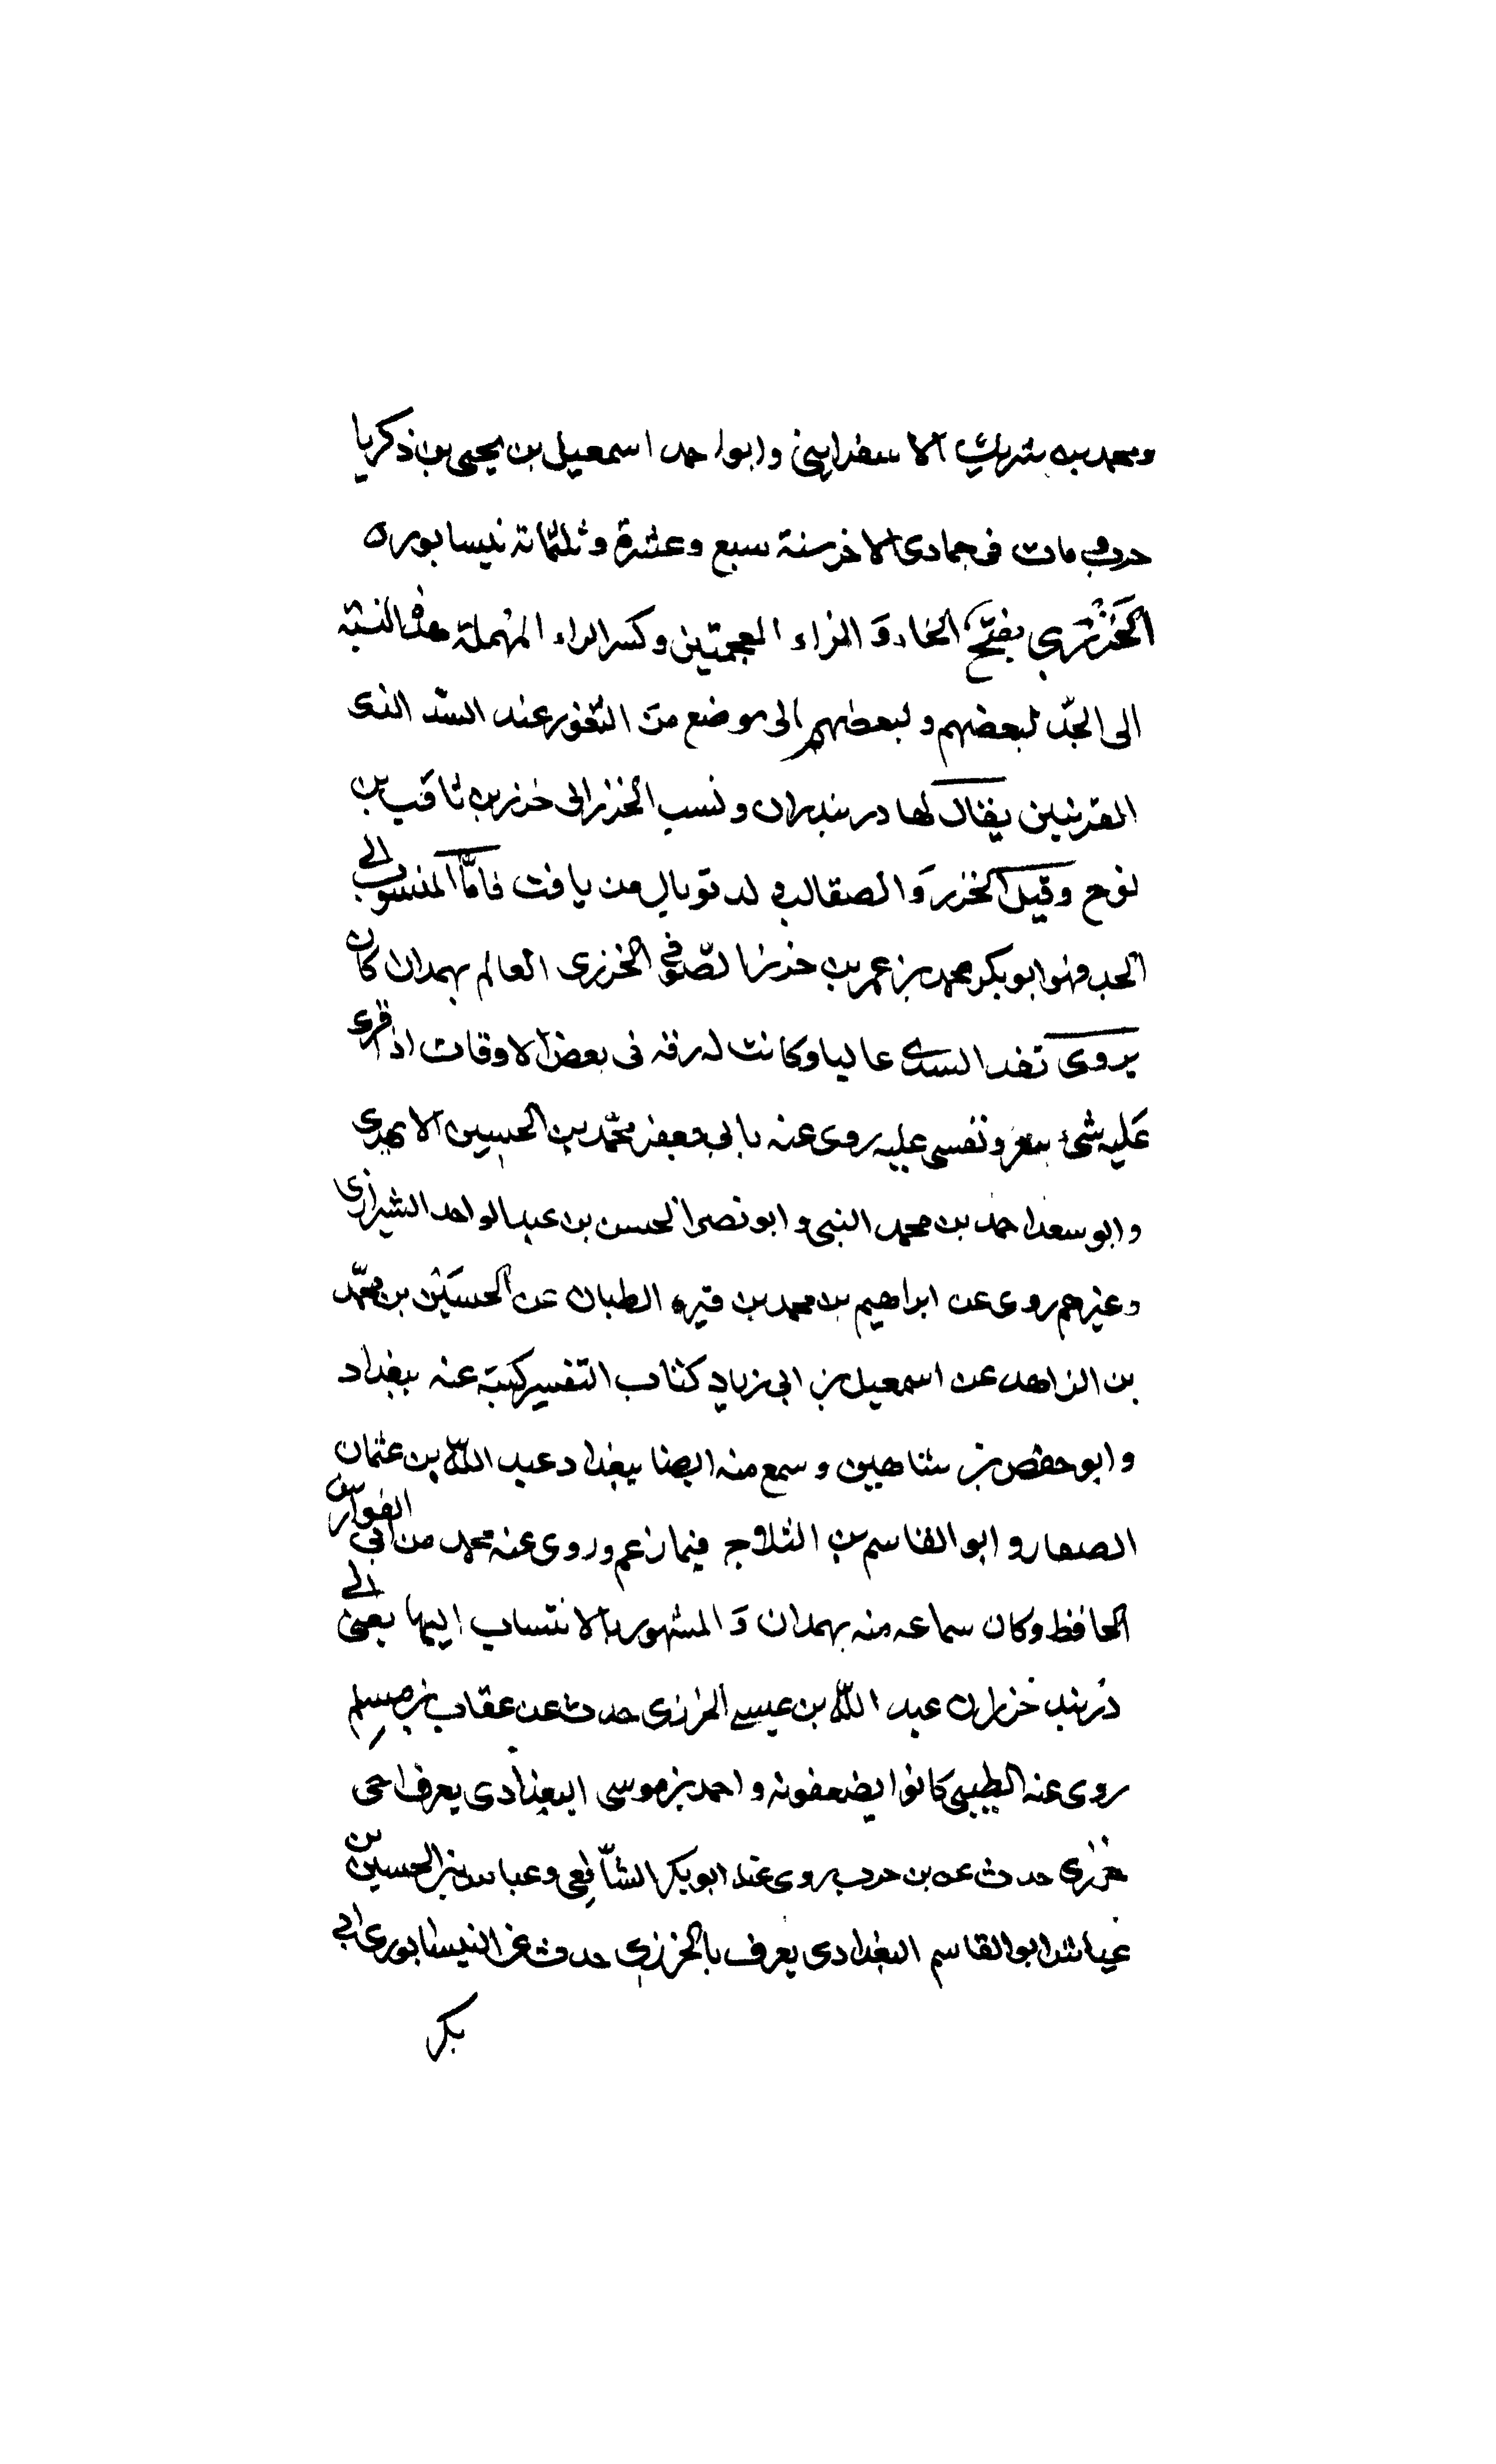 ومحمد بن شريك الاسفرايني وابو احمد اسمعيل بن يحيى بن زكريا
حرب مات فى جمادى الاخر سنة سبع وعشرة وثلثمائة نيسابوره
الخزري بفتح الخاء و الزاء المعجمتين وكسر الراء المهملة هذه النسبة
الى الجدّ لبعضهم و لبعضهم الى موضع من الثغور عند السدّ الذى
القرنين يقال لها دربند بران و نسب الخزر الى خزر بن ثاقب بن
نوح وقيل الخزر وَالصقالبه ولد توبال من يافث فامّا المنسوب الى
الجد فهو ابو بكر محمد بن عمر بن خزر الصّوفي الخزرى العالم بهمدان كان
يروى تفسير السدى عاليا وكانت له رقه فى بعض الاوقات اذا قرئ
عَليه شئ وتفسى عليه روى عنه بابى جعفر محمّد بن الحسين الابهرى
و ابو سعد احمد بن محمد النبى و ابو نصر الحسن بن عبد الواحد الشيرازى
وغيرهم روى عن ابراهيم بن محمد بن قيره الطبان عن الحسَين بن محمّد
بن الزاهد عن اسمعيل بن ابى زياد كتاب التفسير كتبته عنه ببغداد
و ابو حفص بن شاهين و سمع منه ايضا ببغداد عبد اللّه بن عثمان
الصفار و ابو القاسم بن الثلاج فيما زعم وروى عنه محمد من ابى الفوارس
الحافظ وكان سماعه منه بهمدان وَ المشهور بالانتساب اليها يعنى الى
دربند خزران عبد اللّه بن عيسى الخزرى حدث عن عقاب بن مسلم
روى عنه الطيبى كانوا يضعفونه و احمد بن موسى البغدادى يعرف
خزرى حدث عن بن حرب روى عنه ابو بكر الشّافعى وعباس بن الحسين بن
عياش ابو القاسم البغدادى يعرف بالخزرى حدث عن النيسابورى ابى
بكر